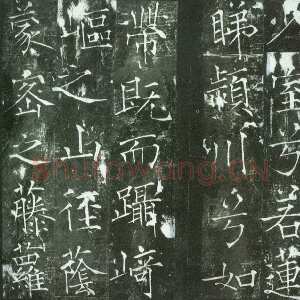 少室兮若蓮
睇潁川兮如
帶既而躡崎
嶇之山徑蔭
蒙密之藤蘿
shufawang.CN